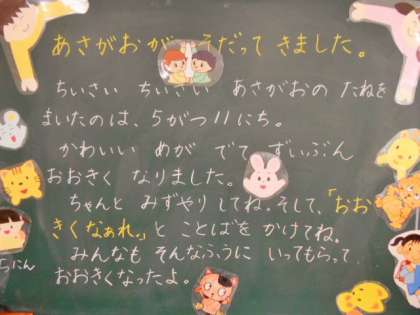 あさがおが そだって きました。
ちいさい ちいさい あさがおの たねを
まいたのは、5がつ11にち。
かわいい めが でて ずいぶん
おおきく なりました。
ちゃんと みずやり してね。そして、「おお
きくなぁれ。」と ことばを かけてね。
みんなも そんなふうに いってもらって
おおきくなったよ。